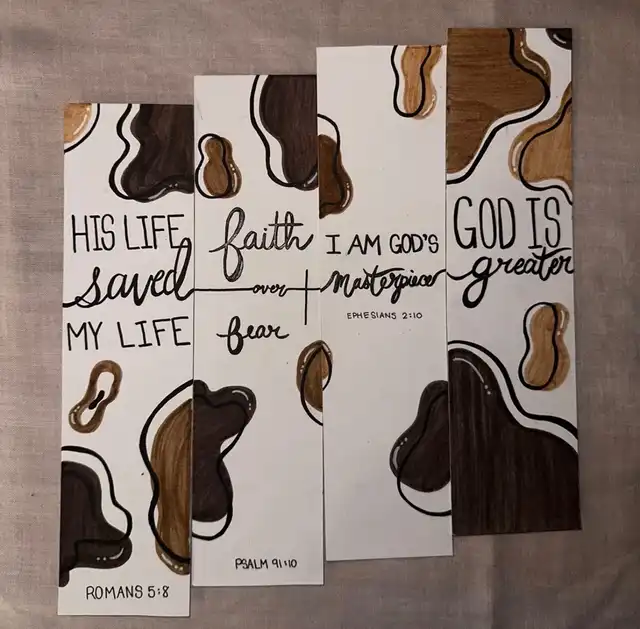 HIS LIFE
saved
MY LIFE
ROMANS 5:8
faith
over
fear
PSALM 91:10
I AM GOD'S
Masterpiece
EPHESIANS 2:10
GOD IS
greater